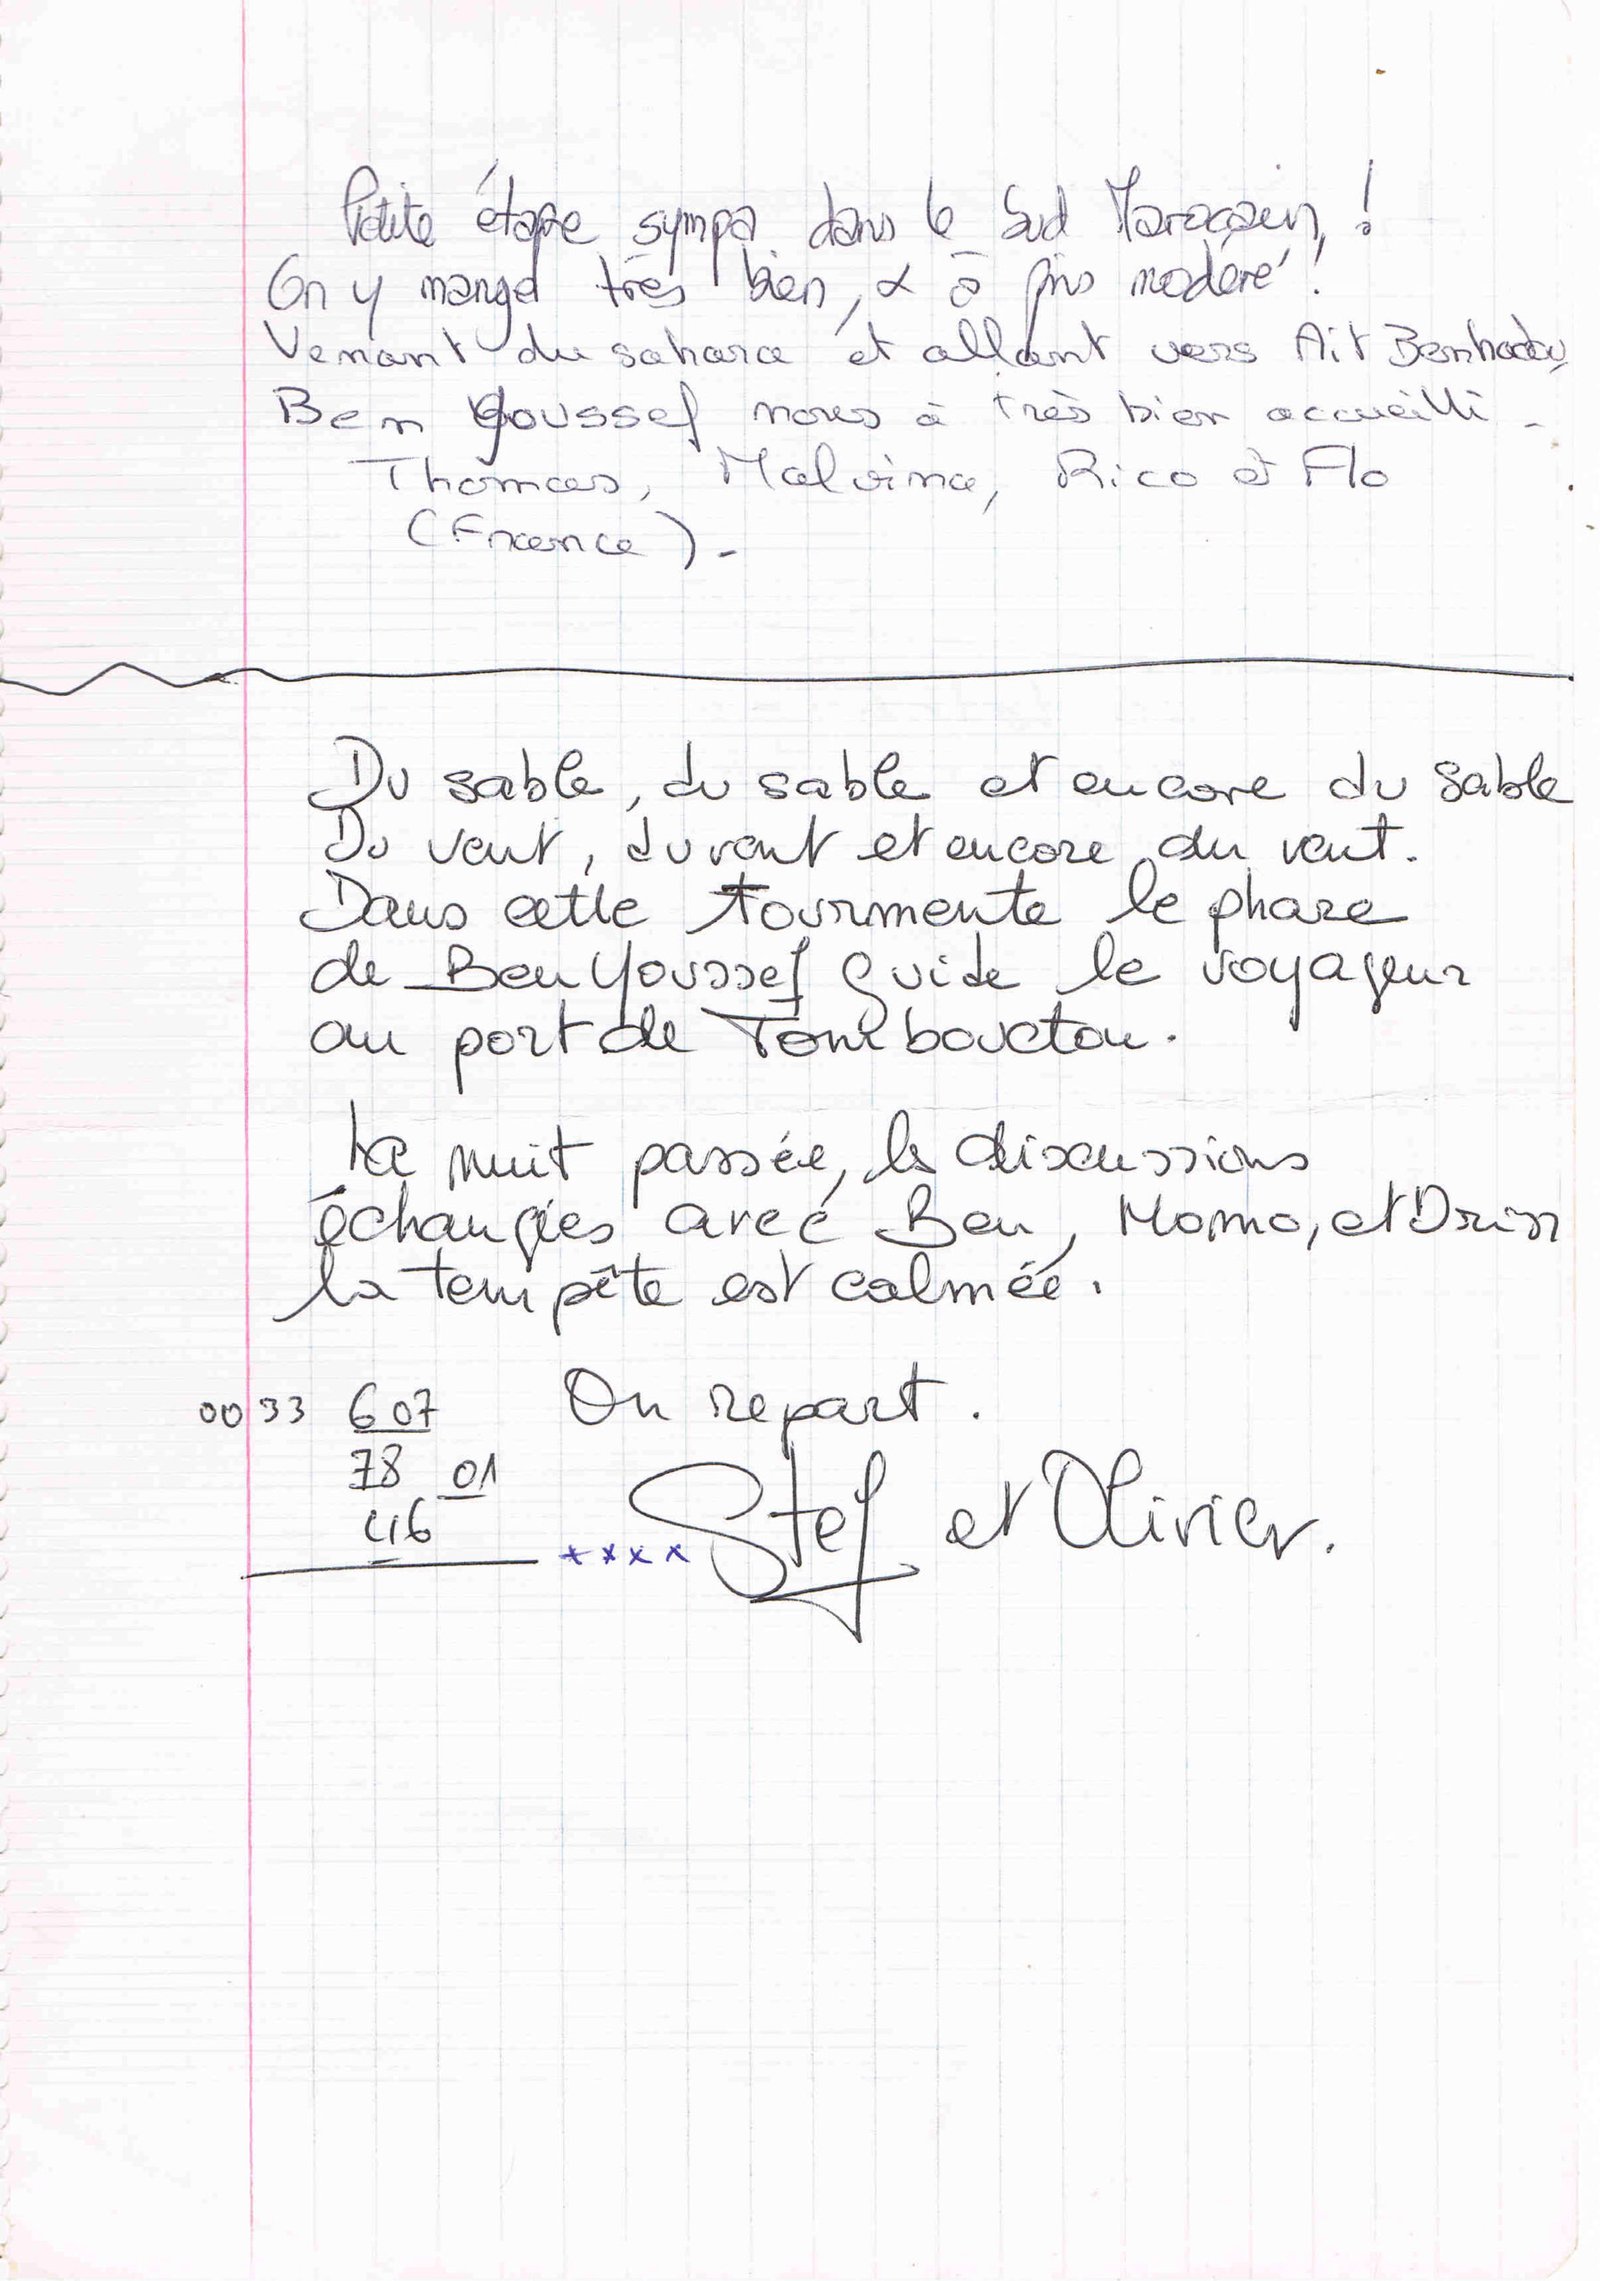 Petite étape sympa dans le Sud Marocain !
On y mange très bien, & à prix modéré !
Venant du sahara et allant vers Ait Benhadou,
Ben Youssef nous à très bien accueilli.
Thomas, Malvina, Rico et Flo
(France).
Du sable, du sable et encore du sable
Du vent, du vent et encore du vent.
Dans cette tourmente le phare
de Ben Youssef guide le voyageur
au port de Tombouctou.
La nuit passée, les discussions
échangées avec Ben, Momo, et Driss
la tempête est calmée.
On repart.
0033 607
78 01
46
++++ Stef et Olivier.